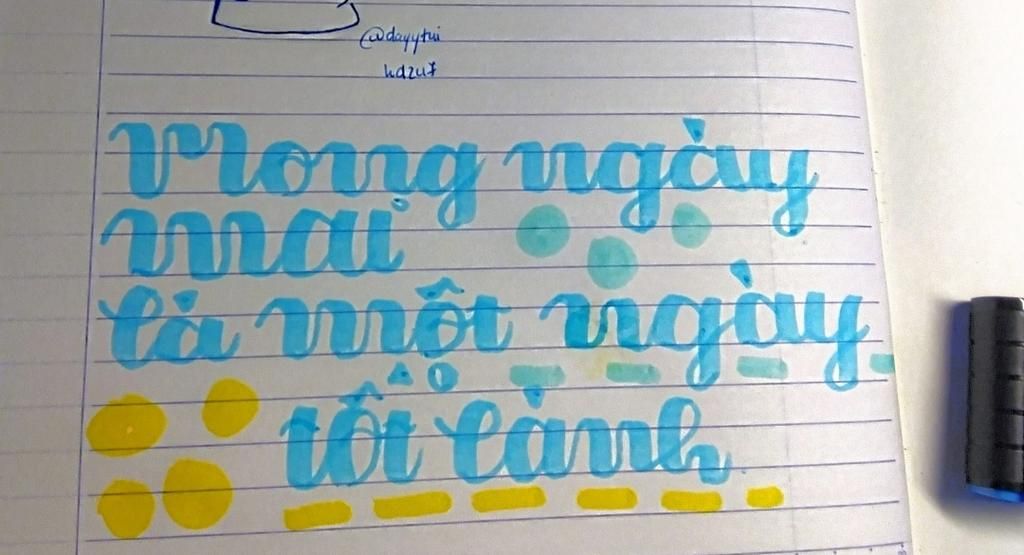 @dayytui
hdzu7
Mong ngày
mai
là một ngày
tốt lành